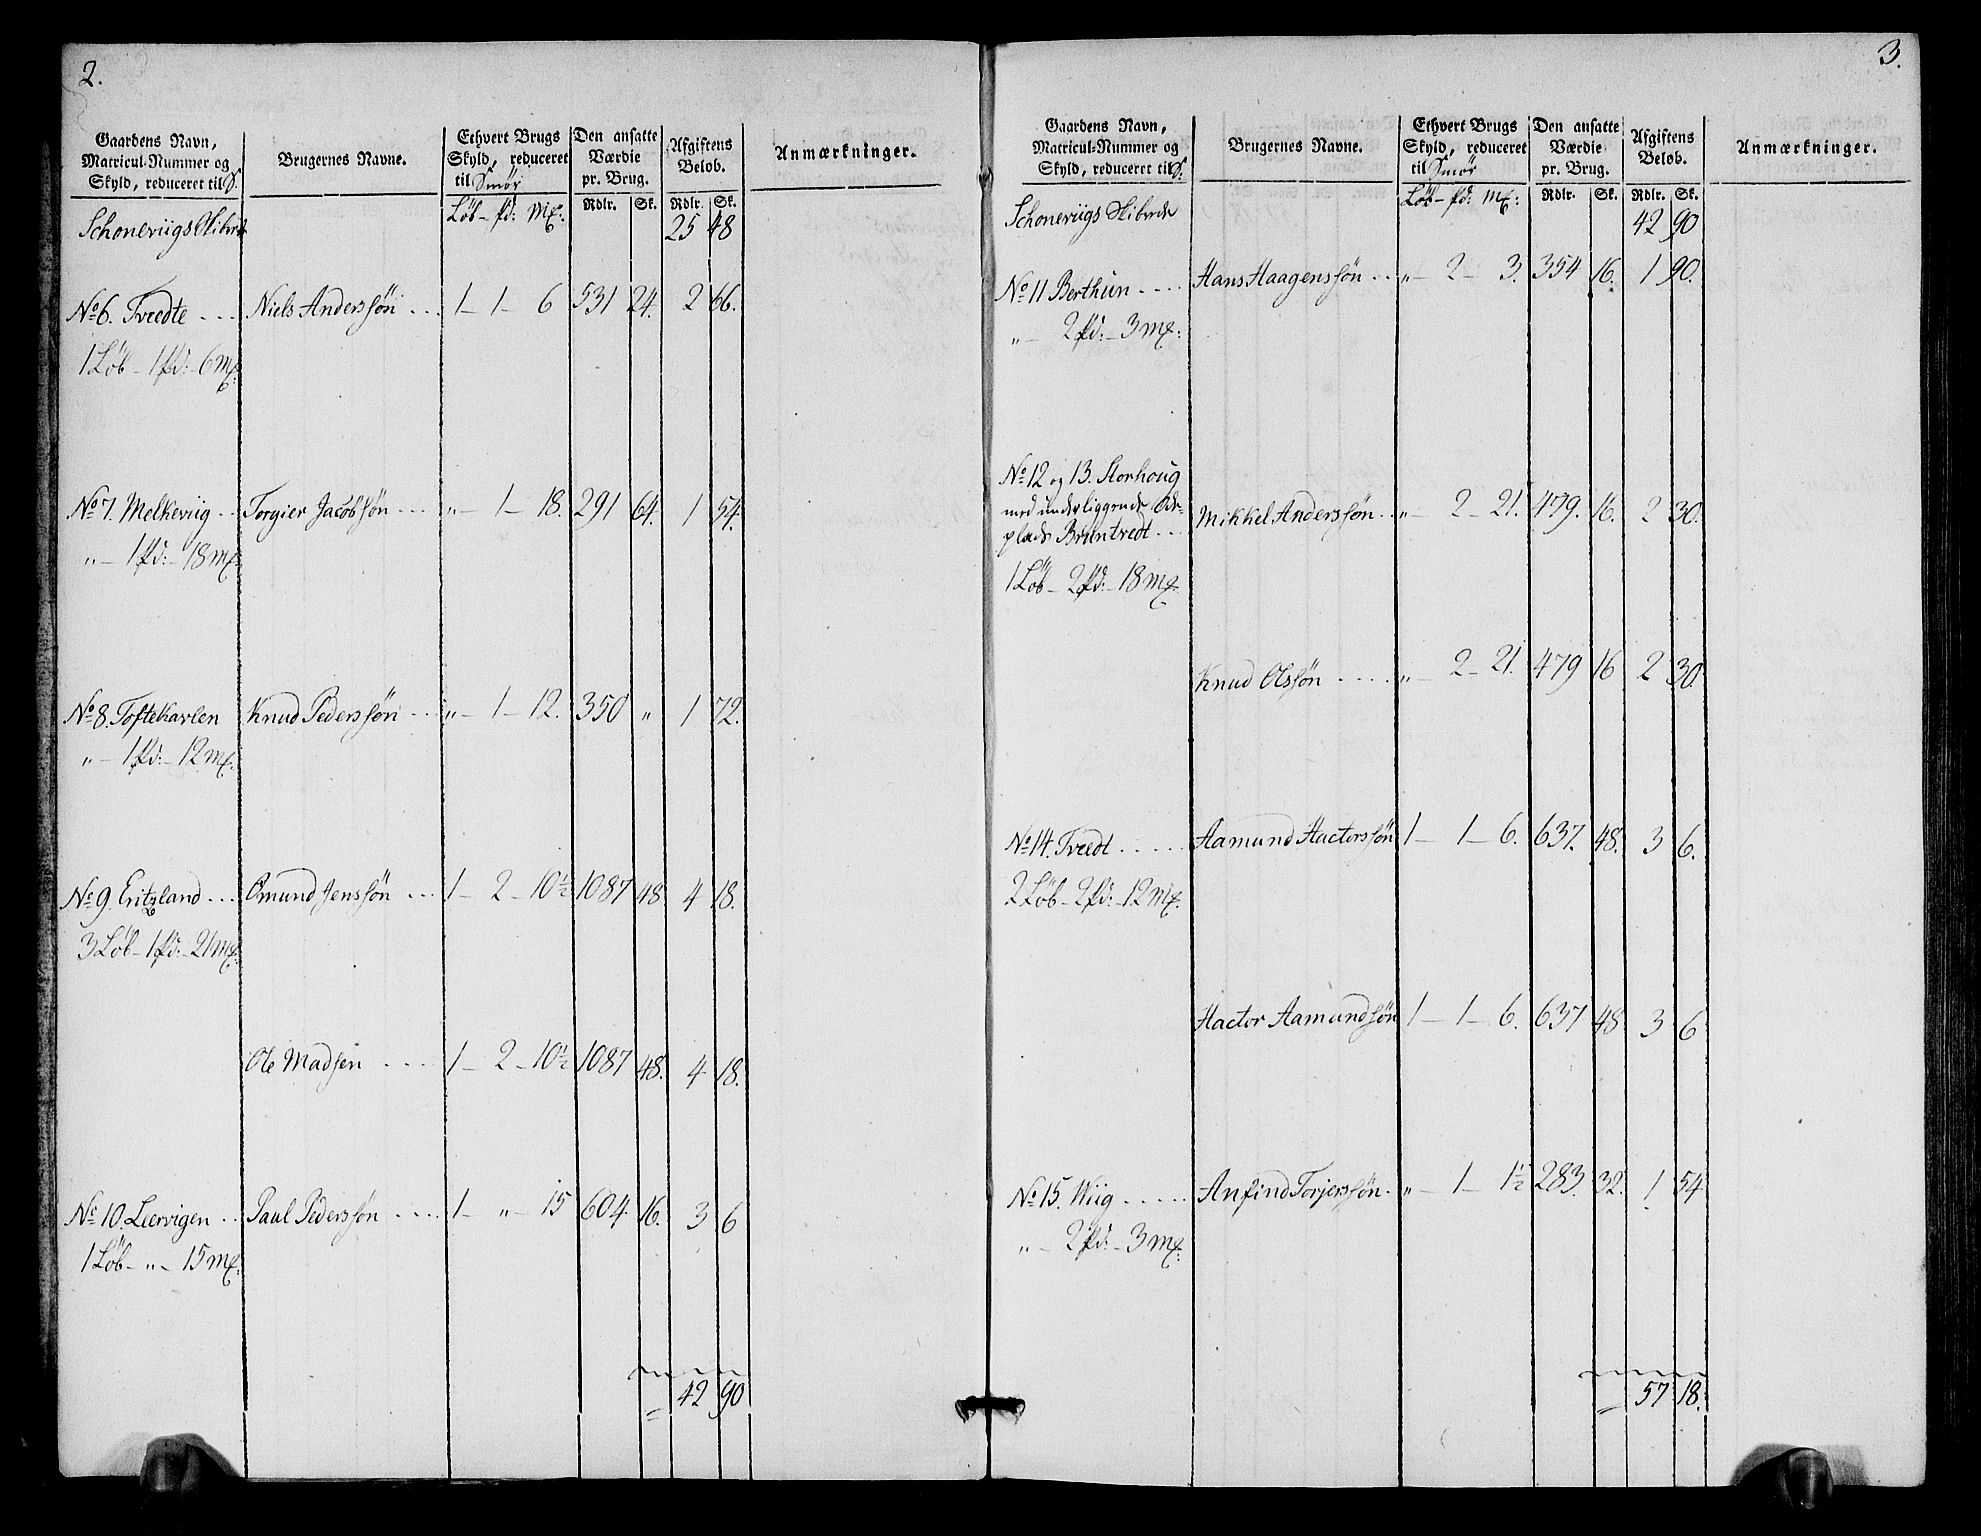 2.
Gaardens Navn, Matricul-Nummer og Skyld, reduceret til S. | Brugernes Navne. | Ethvert Brugs Skyld, reduceret til Smör | Den ansatte Værdie pr. Brug. | Afgiftens Beløb. | Anmærkninger.
Löb - pd: mk: | Rdlr. | Sk. | Rdlr. | Sk.
Schoneviigs Skibrede 25 48
No 6. Tvedte ... Niels Anderssön ... 1 - 1 - 6 531 24. 2 66.
1 Löb - 1 pd: - 6 mk:
No 7. Melkeviig .. Torgier Jacobsön ... „ - 1 - 18. 291 64. 1 54.
„ - 1 pd: - 18 mk:
No 8. Toftekarlen Knud Pederssön ... „ - 1 - 12. 350 „ 1 72.
„ - 1 pd: - 12 mk:
No 9. Eritzland ... Omund Jenssön ... 1 - 2 - 10½ 1087 48 4 18.
3 Löb - 1 pd: - 21 mk:
Ole Madsen .... 1 - 2 - 10½ 1087 48. 4 18.
No 10. Leervigen .. Paul Pederssön .... 1 - „ - 15 604. 16. 3 6
1 Löb - „ - 15 mk:
42 90
3.
Gaardens Navn, Matricul-Nummer og Skyld, reduceret til S. | Brugernes Navne. | Ethvert Brugs Skyld, reduceret til Smör | Den ansatte Værdie pr. Brug. | Afgiftens Beløb. | Anmærkninger.
Löb - pd: mk: | Rdlr. | Sk. | Rdlr. | Sk.
Schoneviigs Skibrede 42 90
No 11 Berthun .... Hans Haagenssön ... „ - 2 - 3. 354 16. 1 90.
„ - 2 pd: - 3 mk:
No 12 og 13. Storhoug
med underliggende Öde-
plads Bruntvedt ... Mikkel Anderssön .. „ - 2 - 21. 479. 16. 2 30.
1 Löb - 2 pd: - 18 mk:
Knud Olssön ..... „ - 2 - 21. 479 16 2 30.
No 14. Tvedt ..... Aamund Hactorssön 1 - 1 - 6. 637. 48. 3 6.
2 Löb - 2 pd: - 12 mk:
Hactor Aamundssön 1 - 1 - 6. 637 48 3 6
No 15. Wiig ..... Anfind Torjerssön . „ - 1 - 1½ 283. 32. 1 54
„ - 2 pd: - 3 mk:
57 18.